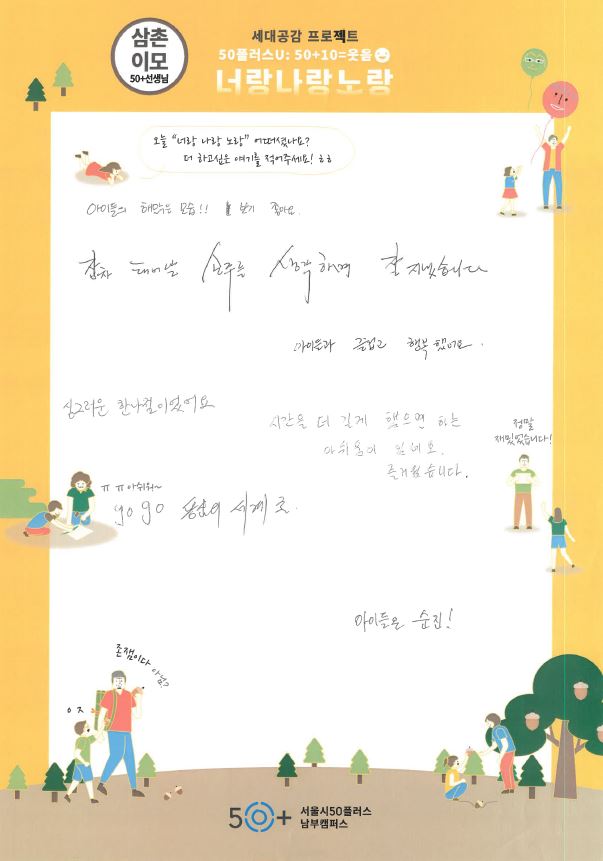 삼촌
이모
50+선생님
세대공감 프로젝트
50플러스U: 50+10=웃음
너랑나랑노랑
오늘 "너랑 나랑 노랑" 어떠셨나요?
더 하고싶은 얘기를 적어주세요! ㅎㅎ
아이들의 해맑은 모습!! 보기 좋아요.
태어날 손주를 생각하며 잘 지냈습니다
아이들과 즐겁고 행복했어요.
싱그러운 한나절이었어요
시간을 더 길게 했으면 하는
아쉬움이 있네요.
즐거웠습니다.
정말
재밌었습니다!
ㅠㅠ아쉬워~
go go 동심의 세계로.
아이들은 순진!
존잼이다 아님?
ㅇㅈ
50+
서울시50플러스
남부캠퍼스